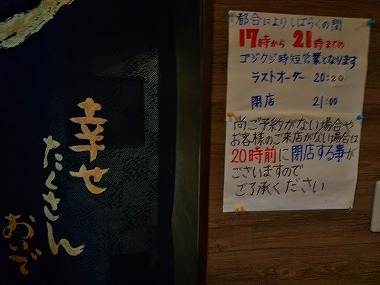 都合によりしばらくの間
17時から21時までの
ゴジクジ時短営業となります
ラストオーダー 20:20
閉店 21:00
尚ご予約がない場合や
お客様のご来店がない場合は
20時前に閉店する事が
ございますので
ご了承ください
幸せ
たくさん
おいで